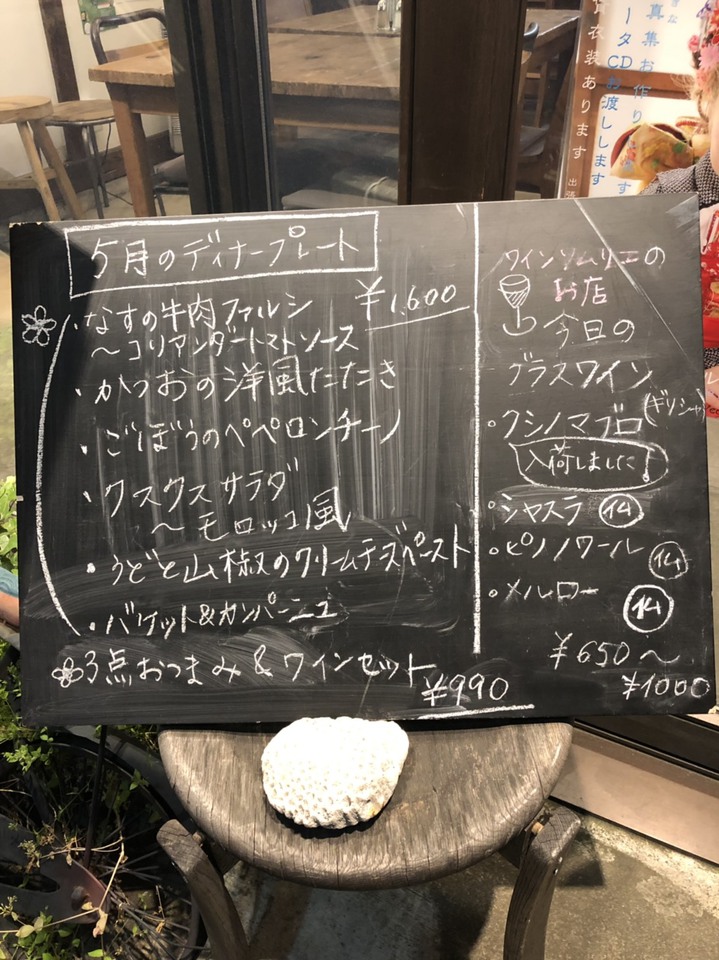 5月のディナープレート
¥1,600
・なすの牛肉ファルシ
〜コリアンダートマトソース
・かつおの洋風たたき
・ごぼうのペペロンチーノ
・クスクスサラダ
〜モロッコ風
・うどと山椒のクリームチーズペースト
・バゲット&カンパーニュ
3点おつまみ&ワインセット
¥990
ワインソムリエの
お店
今日の
グラスワイン
・クシノマブロ(ギリシャ)
入荷しました!
・シャスラ 仏
・ピノノワール 仏
・メルロー 仏
¥650〜
¥1000
真集お作り
ータCDお渡しします
衣装あります